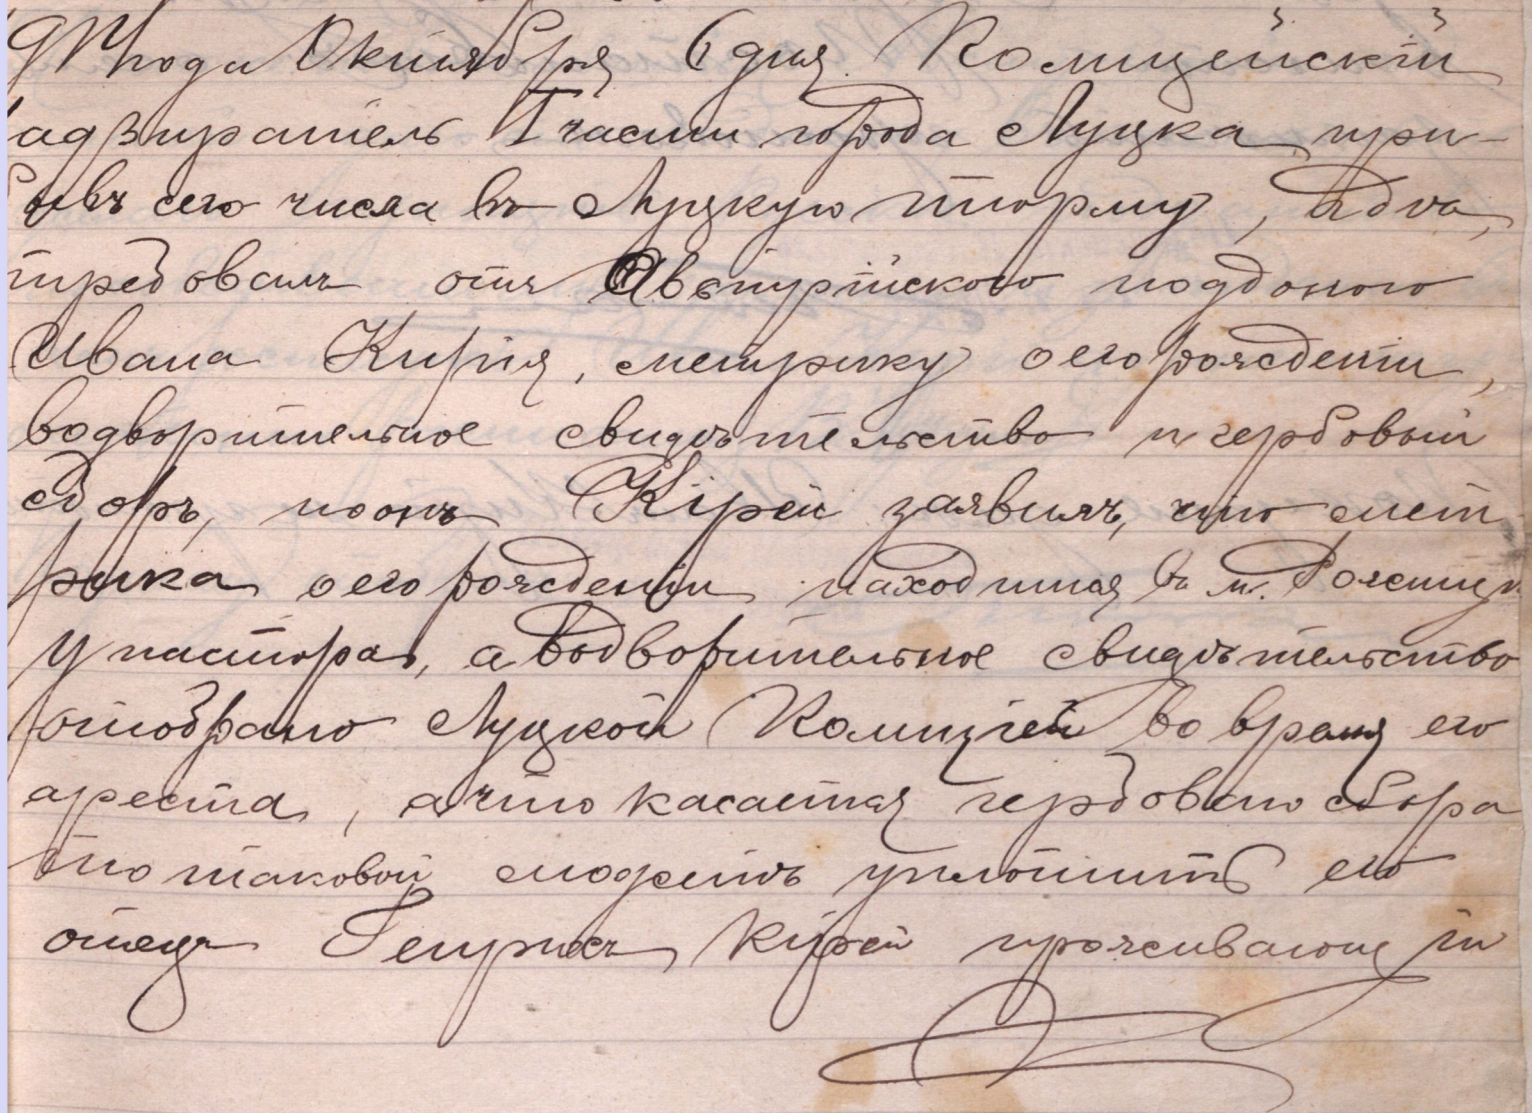 года Октября 6 дня Полицейскій
адзиратель I части города Луцка, при-
бывъ сего числа въ Луцкую тюрму,
требовалъ отъ Австрійского подданого
Ивана Кирія, метрику о его рожденіи,
водворительное свидѣтельство и гербовый
сборъ, но онъ Кірей заявилъ, что мет-
рика о его рожденіи находится въ м. Рожищѣ
у пастора, а водворительное свидѣтельство
отобрано Луцкой Полиціей во время его
ареста, а что касается гербового сбора
то таковой можетъ уплотить его
отецъ Генрихъ Кірей проживающій